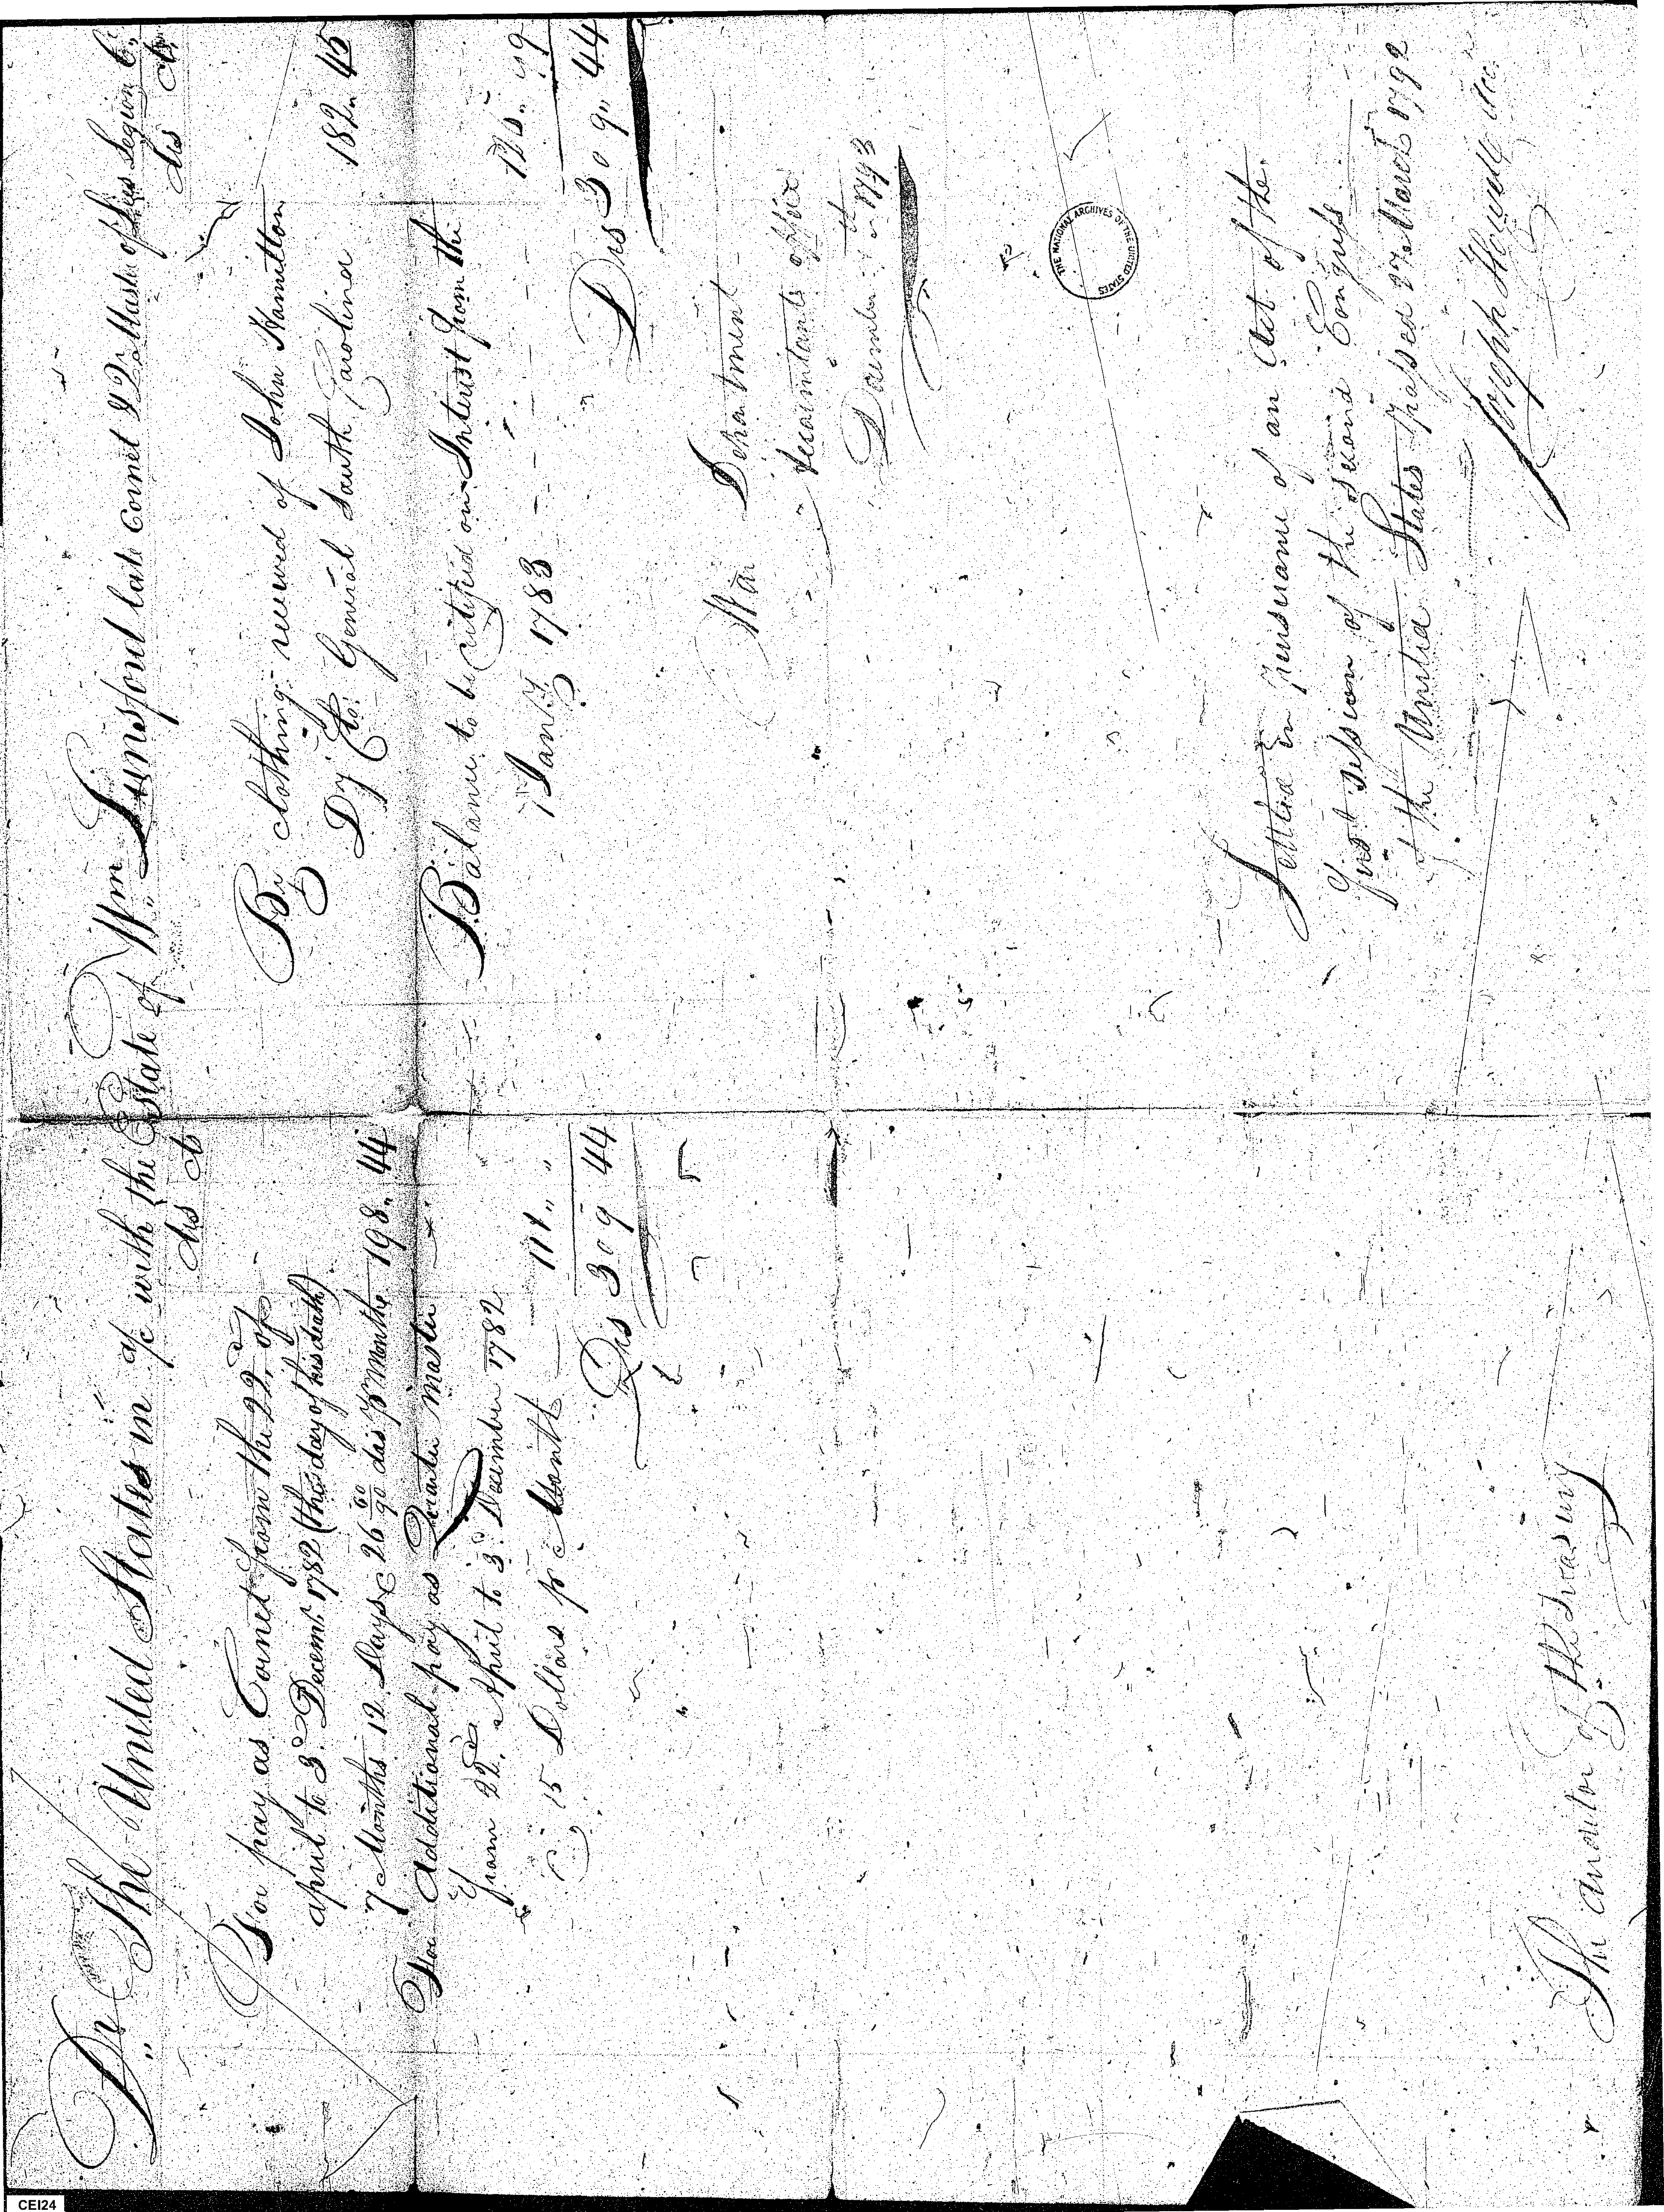 Dr The United States in a/c with the Estate of Wm Lunsford late Cornet & Qr Mastr of Lees Legion Cr
dls cts
For pay as Cornet from the 22d of
april to 3d Decemr 1782 (the day of his death)
7 Months 12 Days @ 26 60/90 dls pr Month 198 " 44
For additional pay as Quarter Master
from 22d April to 3d December 1782
@ 15 Dollars pr Month 111 " "
Dls 309 44
dls cts
By clothing received of John Hamilton
Dy Clo. General South Carolina 182 " 45
Balance to be certified on Interest from the
1 Jany 1783
Dls 309 " 44
War Department
Accountants office
December 1793
Settled in pursuance of an Act of the
first session of the second Congress
of the United States passed 27 March 1792
Joseph Howell Acct.
The Auditor of the Treasury
THE NATIONAL ARCHIVES OF THE UNITED STATES
CEI24